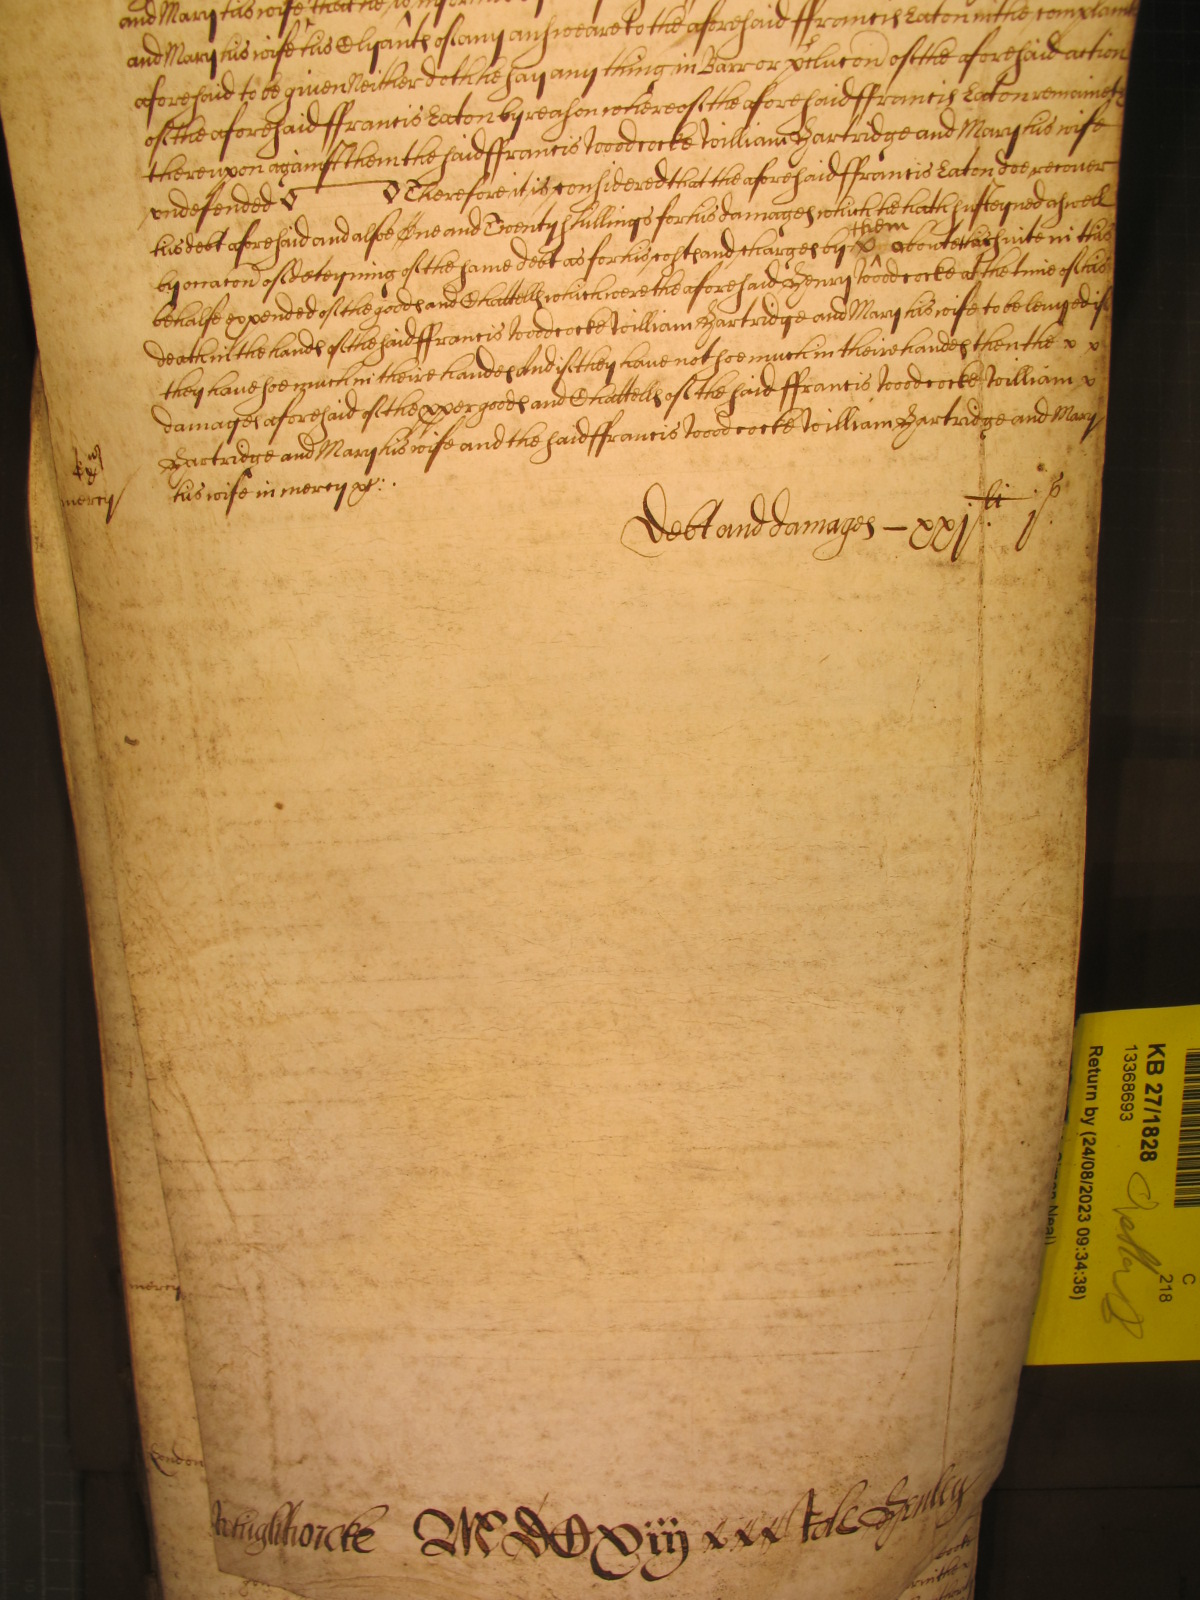 and Mary his wife that he is
and Mary his wife his Clyants of any answeare to the aforesaid ffrancis Eaton in the complaint
aforesaid to be given Neither doth he say any thing in Barr or of the aforesaid action
of the aforesaid ffrancis Eaton by reason whereof the aforesaid ffrancis Eaton remaineth
thereupon against them the said ffrancis Woodcocke William Hartridge and Mary his wife
vndefended Therefore it is considered that the aforesaid ffrancis Eaton doe recover
his debt aforesaid and alsoe One and Twenty shillings for his damages which he hath susteyned aswell
by occacon of deteyning of the same debt as for his costs and charges by them about his suite in this
behalfe expended of the goods and Chattells which were the aforesaid Henry Woodcocke at the time of his
death in the hands of the said ffrancis Woodcocke William Hartridge and Mary his wife to be levyed if
they have soe much in theire handes And if they have not soe much in theire handes then the x x
damages aforesaid of the pper goods and Chattells of the said ffrancis Woodcocke William x
Hartridge and Mary his wife and the said ffrancis Woodcocke William Hartridge and Mary
mercy
his wife in mercy &c.
Debt and damages — xxj li j s
mercy
London
MDCXiij xxx
KB 27/1828
13368693
Return by (24/08/2023 09:34:38)
C
218